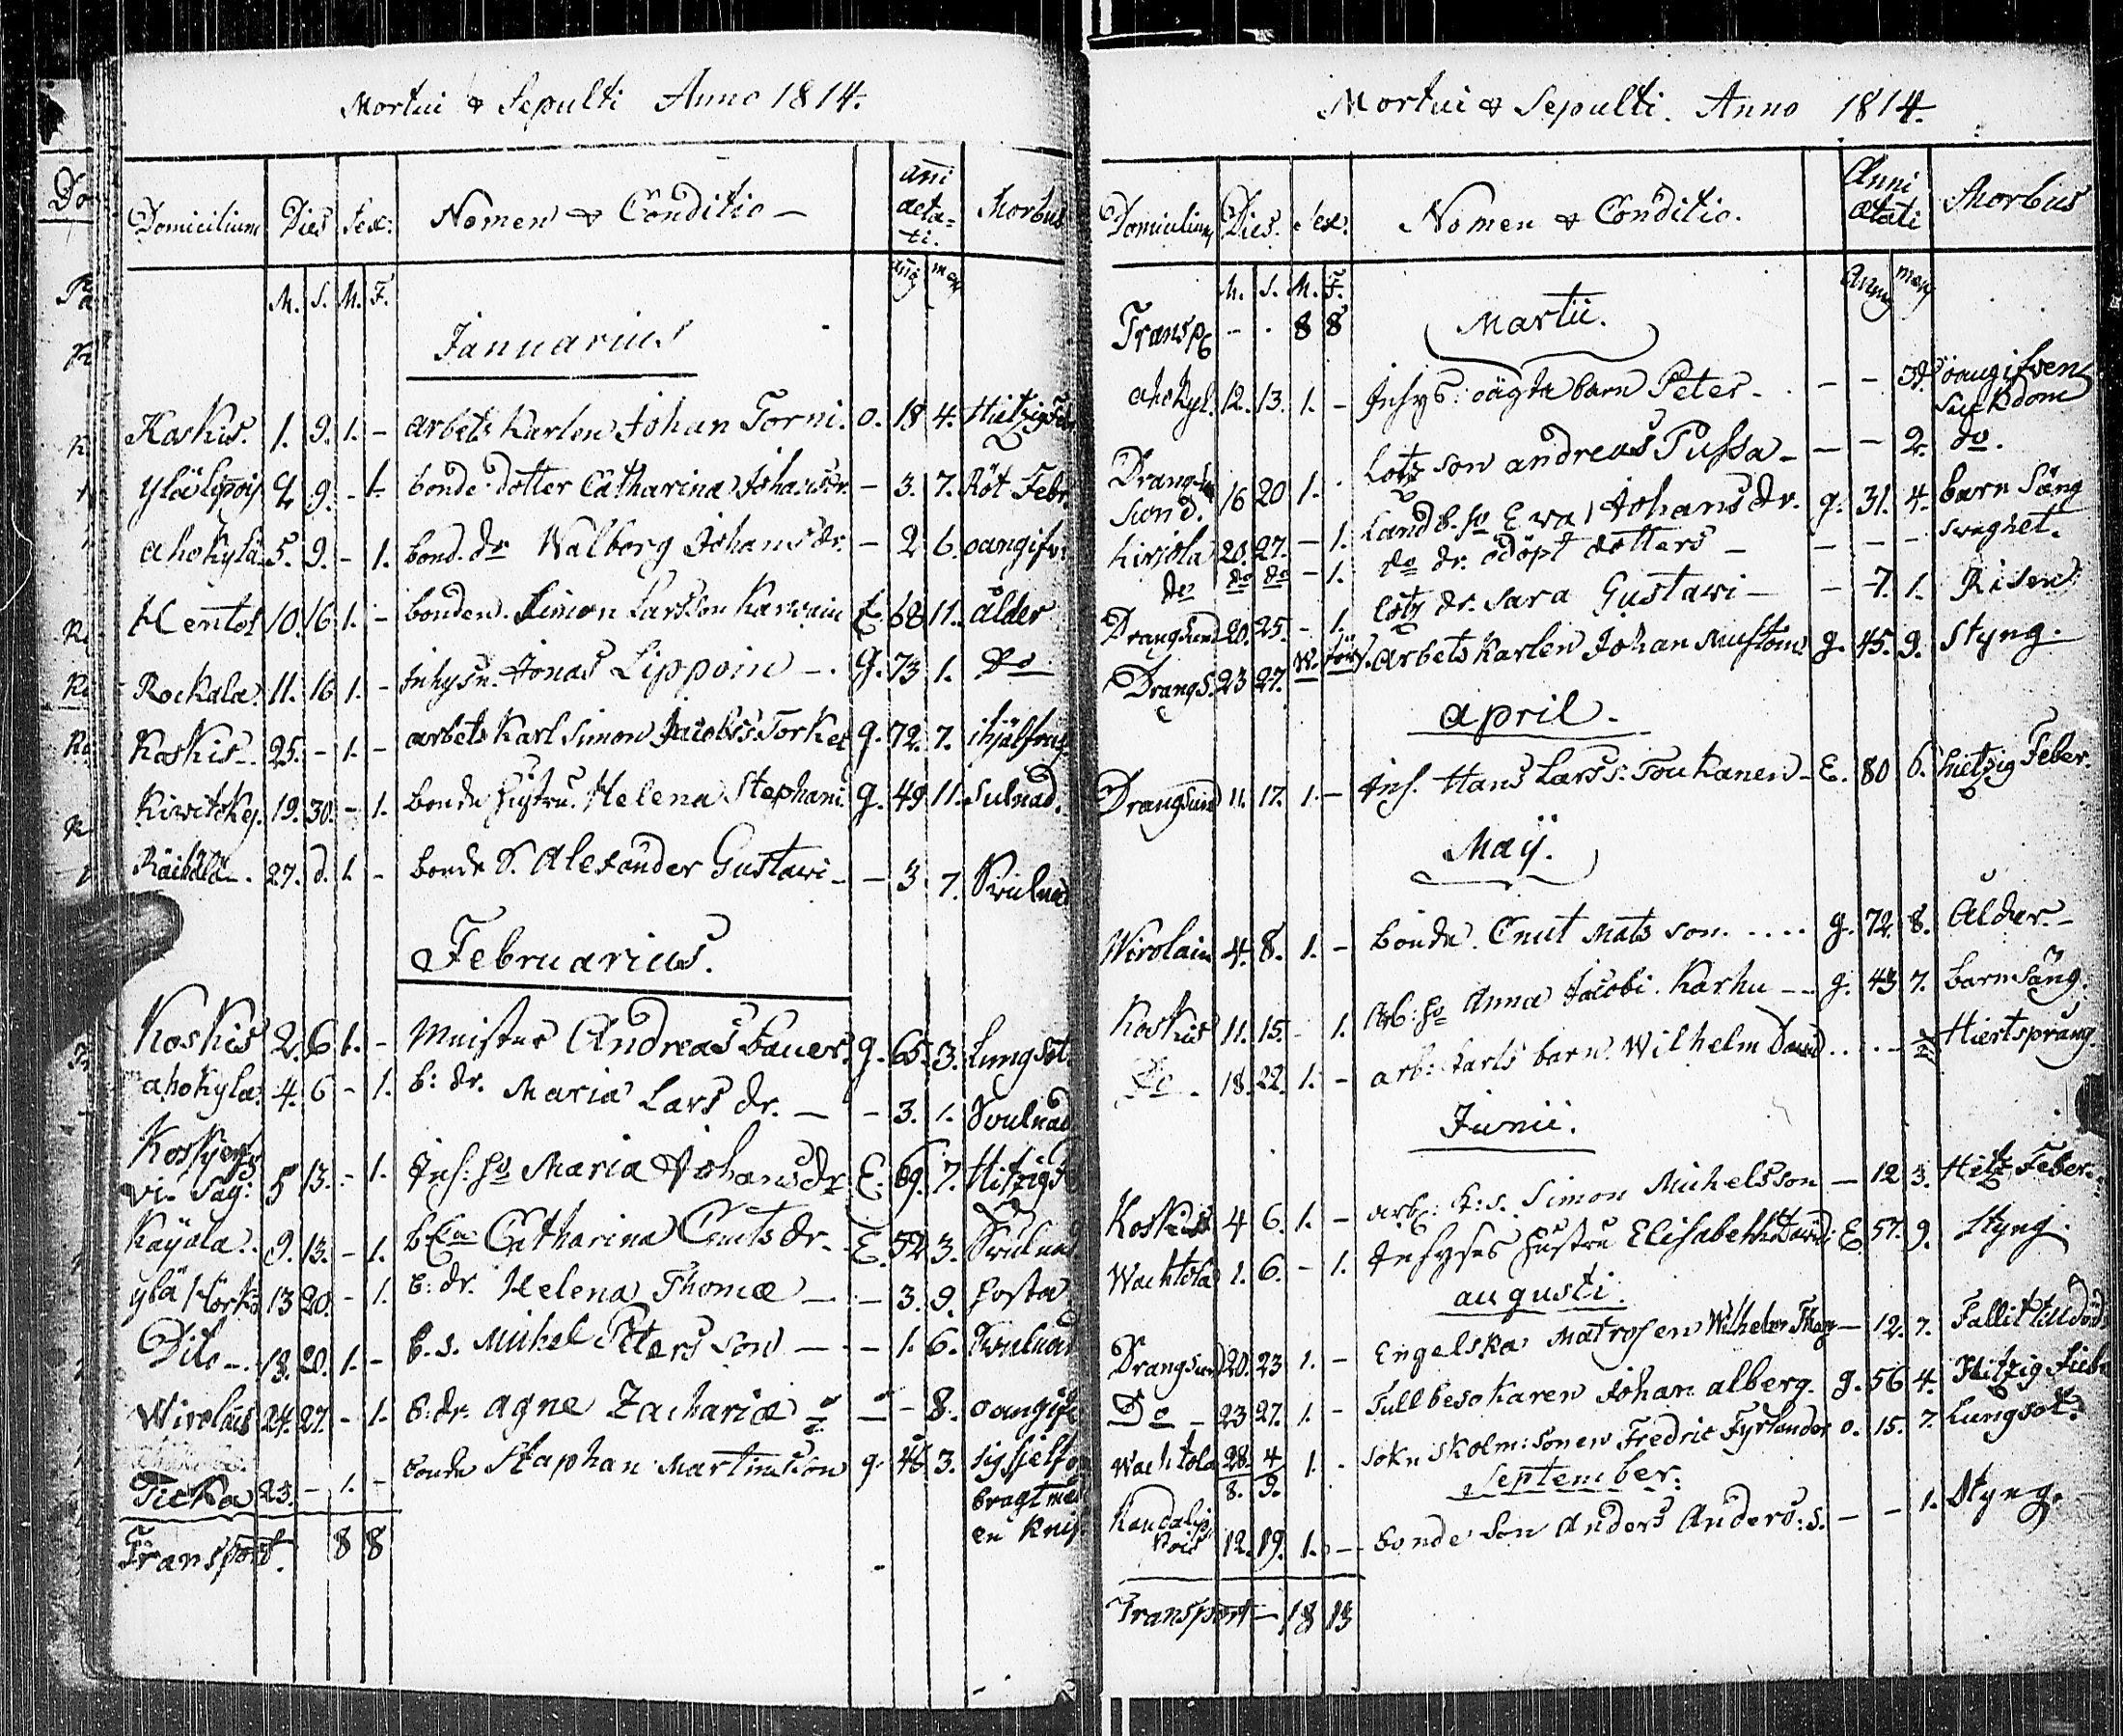 Mortui & Sepulti Anno 1814.
Domicilium Dies Sex: Nomen & Conditio — Morbus
M. S. M. F.
Januarius
Koskis. 1. 9. 1. - arbets Karlen Johan Torni. o. 18 4. Hitzig
9. - 1. bonde dotter Catharina Johansdr. - 3. 7. Röt Febr.
ahokylä 5. 9. - 1. bond. dr Walborg Johansdr. - 2 6. oangifv:
Hentol 10. 16 1. - bonden. Simon Larsson Karvain E. 68 11. ålder
Rockala. 11. 16 1. - Inhysn. Jonas Lippoin - . g. 73 1. do
Koskis. 25. - 1. - arbets Karl Simon Jacobss. Torkel g. 72. 7.
Kiviticky. 19. 30. - 1. bonde hustru. Helena Stephani g. 49. 11. Sulnad.
Räihälä. 27. d. 1. - bonde S. Alexander Gustavi - - 3 7. Svulnad
Februarius.
Koskis 2. 6 1. - Mäister Andreas Bauer. g. 65. 3. Lungsot.
ahokyla. 4. 6 - 1. b: dr. Maria Lars dr. - - 3. 1. Svulnad
5 13. - 1. Inh: ho Maria Johansdr E. 69. 7. Hitzig
Käyälä. 9. 13. - 1. Catharina Cnutsdr. E. 52 3. Svulnad
ylä 13 20. - 1. b: dr. Helena Thomæ - - 3. 9. hosta
Dito -. 13. 20. 1. - b. s. Michel Peters son - - 1. 6. Svulnad
Wirolais 24. 27. - 1. b: dr. agne Zachariæ - - 8. oangif
Ticka 23. - 1. - bonde Staphan Martinsson g. 46 3. sig sjelf om
bragt med
en Knif
Transport. 8 8
Mortui & Sepulti. Anno 1814.
Domicilium Dies. Sex. Nomen & Conditio. Anni ætati Morbus
M. S. M. F.
Transp - . 8 8 Martii.
ahokyl. 12. 13. 1. - Inhys: oägta barn Peter - . - - oangifven
Sjukdom
Drang-
sund. 16 20 1. . Lotz son andreas Pussa - - - 2. do.
Kirjola 20. 27. - 1. Landb. ho Eva Johansdr. g. 31. 4. barn Säng
do do do - 1. do dr. odöpt dotters - - - - svaghet.
Drangsund 20. 25. - 1. Lotz dr. Sara Gustavi - - 7. 1. Risen
Drangs. 23 27. arbets Karlen Johan g. 45. 9. Styng.
april.
Drangsund 11. 17. 1. - Inh. Hans Larss: Toukanen - E. 80 6. hietzig Feber.
Maÿ.
Wirolain 4. 8. 1. - bonde. Cnut Mats son. .... g. 72. 8. Ålder -
Koskis 11. 15. - 1. Arb: ho Anna Jacobi. Karhu - - g. 43 7. barn säng.
Do. 18. 22. 1. - arb: Karls barn. Wilhelm David Hiertsprång.
Junii.
Koskis 4 6. 1. - arb: K: s. Simon Michelsson - 12 3. Hitz Feber.
Wachtola 1. 6. - 1. Inhyses hustru Elisabeth David: E. 57. 9. Styng.
augusti.
Drangsund 20. 23 1. - Engelska Matrosen Wilhelm - 12. 7. Fallit till död
Do - 23 27. 1. - Tullbesökaren Johan alberg. g. 56 4. Hitzig Feb
Wachtola 28. 4 1. - Sokn Skolm: sonen Fredric Fyrlander o. 15. 7. Lungsot.
8. 9.
September.
12. 19. 1. - bonde Son Anders Anders: s. - - 1. Styng.
Transport - 18 13